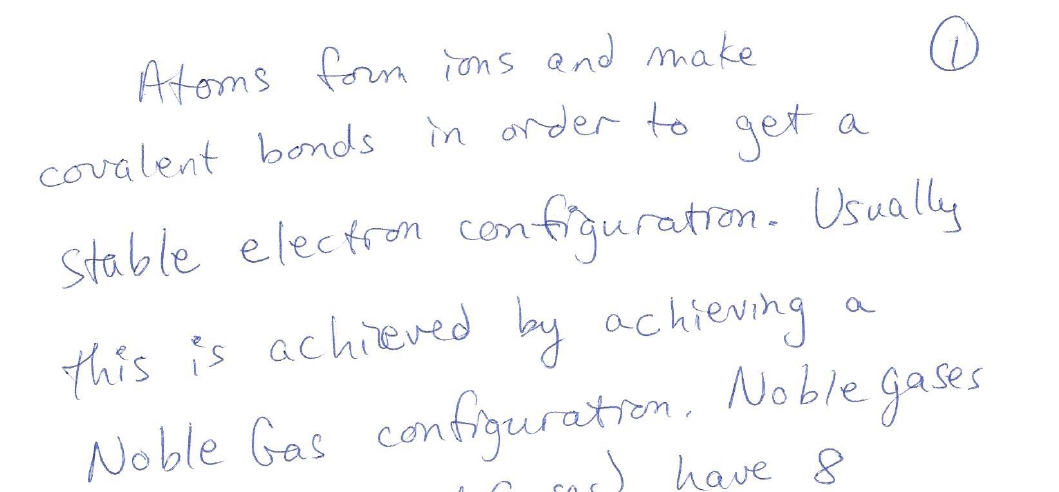 Atoms form ions and make ①
covalent bonds in order to get a
stable electron configuration. Usually
this is achieved by achieving a
Noble Gas configuration. Noble gases
have 8